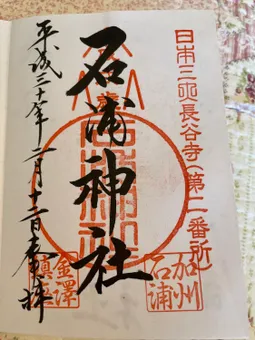 日本三所長谷寺(第二番所)
石浦神社
加州
石浦
金澤
平成三十年二月十二日奉拝